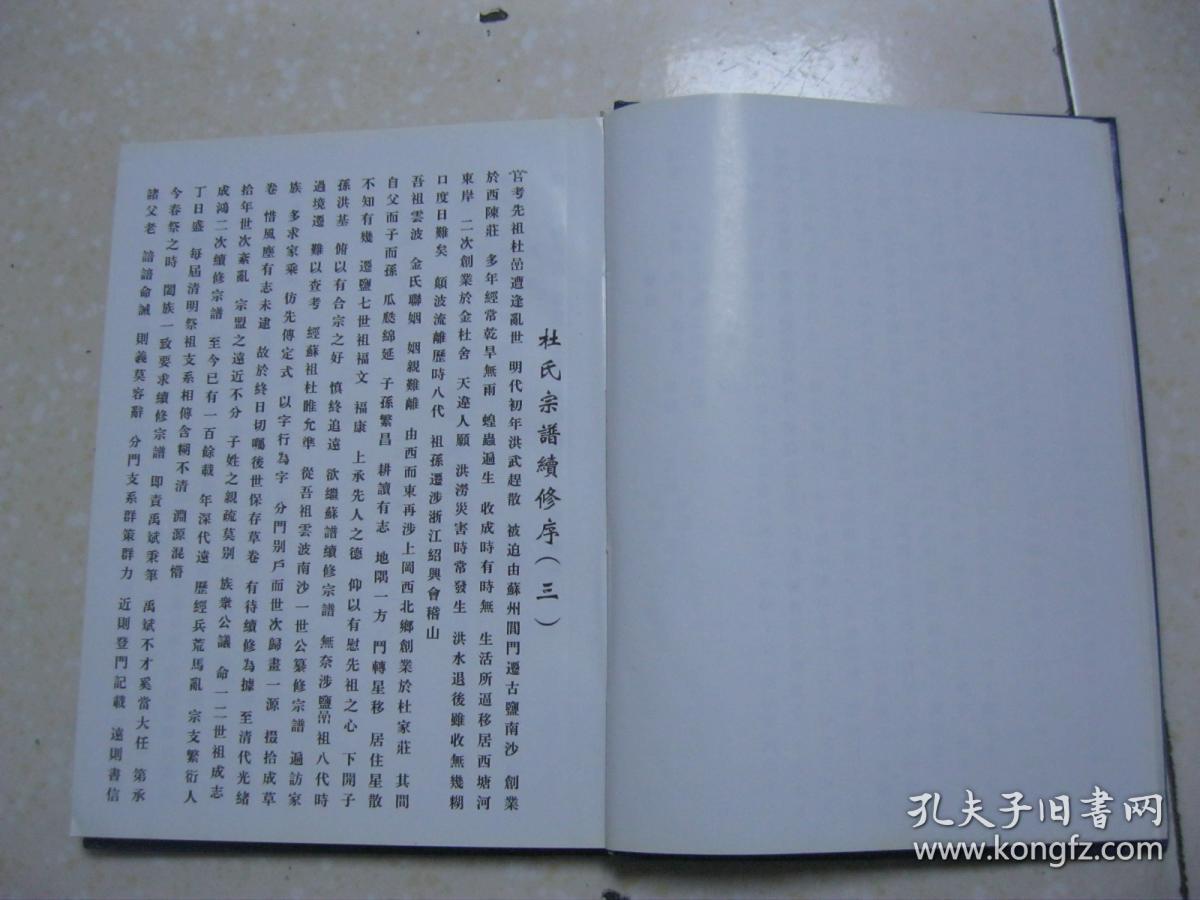 杜氏宗譜續修序（三）
考先祖杜遭逢亂世 明代初年洪武趕散 被迫由蘇州閶門遷古鹽南沙 創業
於西陳莊 多年經常乾旱無雨 蝗蟲遍生 收成時有時無 生活所逼移居西塘河
東岸 二次創業於金杜舍 天違人願 洪澇災害時常發生 洪水退後雖收無幾糊
口度日難矣 顛波流離歷時八代 祖孫遷涉浙江紹興會稽山
吾祖雲波 金氏聯姻 姻親難離 由西而東再涉上岡西北鄉創業於杜家莊 其間
自父而子而孫 瓜瓞綿延 子孫繁昌 耕讀有志 地隅一方 鬥轉星移 居住星散
不知有幾 遷鹽七世祖福文 福康 上承先人之德 仰以有慰先祖之心 下開子
孫洪基 俯以有合宗之好 慎終追遠 欲繼蘇譜續修宗譜 無奈涉鹽祖八代時
過境遷 難以查考 經蘇祖杜睢允準 從吾祖雲波南沙一世公纂修宗譜 遍訪家
族 多求家乘 仿先傳定式 以字行為字 分門別戶而世次歸畫一源 掇拾成草
卷 惜風塵有志未逮 故於終日切囑後世保存草卷 有待續修為據 至清代光緒
拾年世次紊亂 宗盟之遠近不分 子姓之親疏莫別 族衆公議 命一二世祖成志
成鴻二次續修宗譜 至今已有一百餘載 年深代遠 歷經兵荒馬亂 宗支繁衍人
丁日盛 每屆清明祭祖支系相傳含糊不清 淵源混淆
今春祭之時 闔族一致要求續修宗譜 即責禹斌秉筆 禹斌不才奚當大任 第承
諸父老 諳諳命誡 則義莫容辭 分門支系群策群力 近則登門記載 遠則書信
孔夫子旧书网
www.kongfz.com